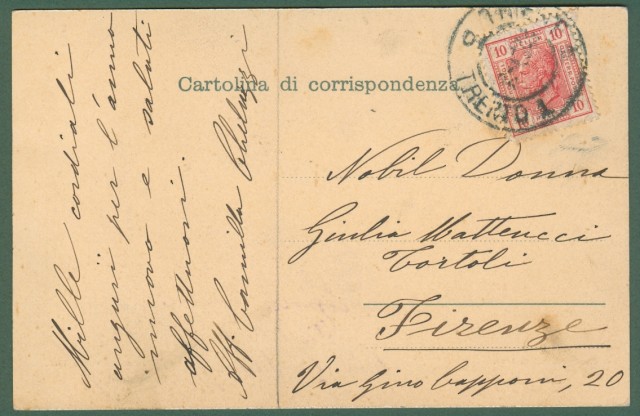 Cartolina di corrispondenza
Mille cordiali
auguri per l'anno
nuovo e saluti
affettuosi.
aff. Camilla
10 10
10
TRENTO 1
Nobil Donna
Giulia Matteucci
Tortoli
Firenze
Via Gino Capponi, 20